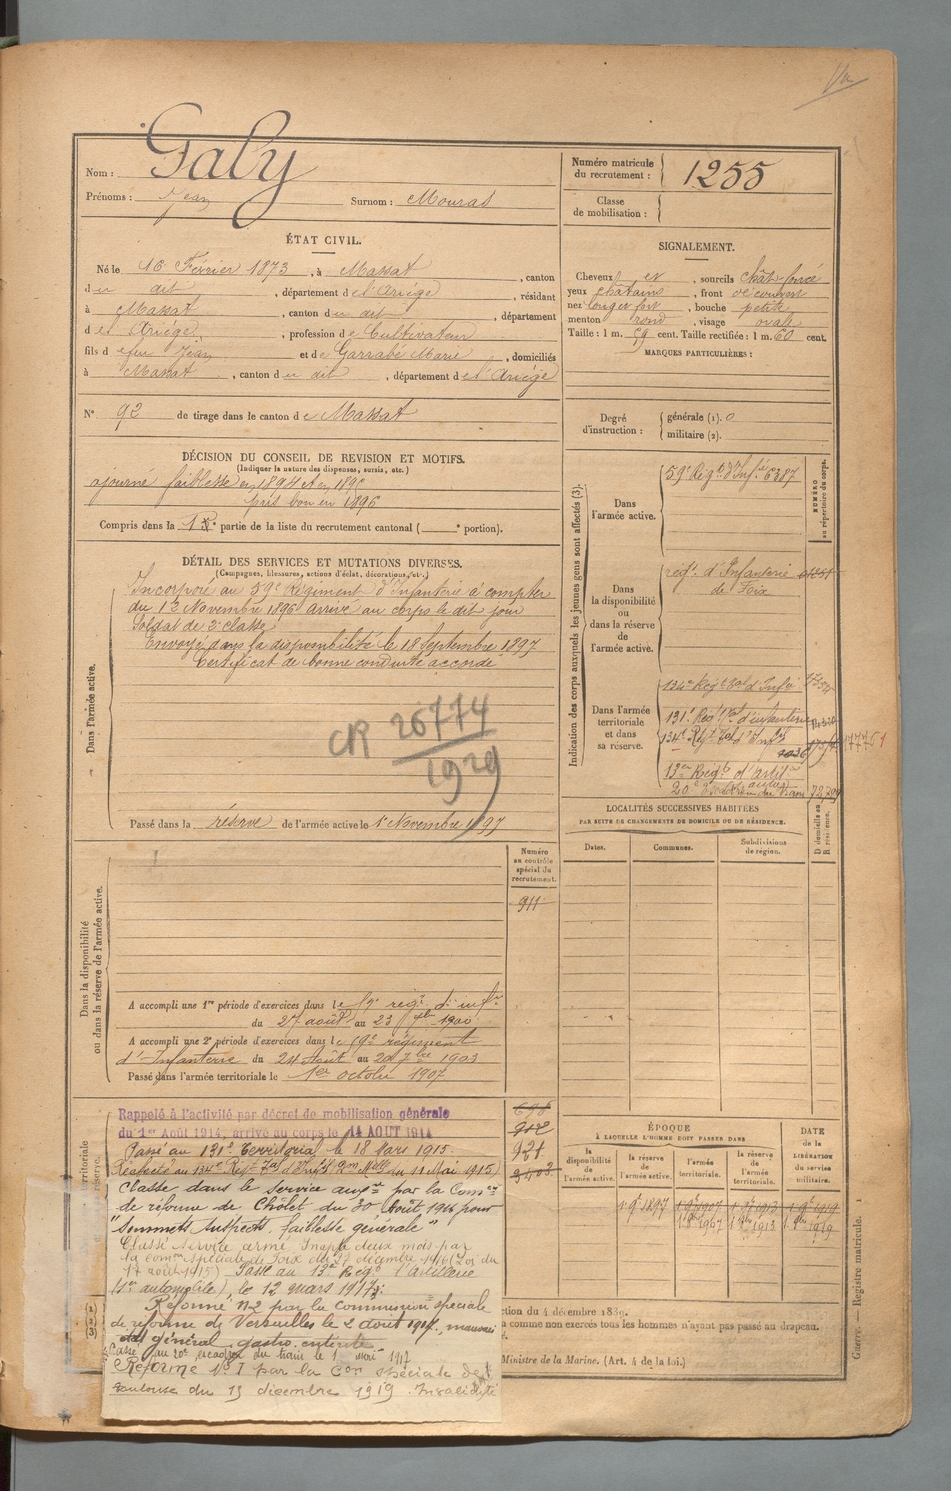 Nom : Galy
Prénoms : Jean Surnom : Mouras
Numéro matricule du recrutement : 1255
Classe de mobilisation :
ÉTAT CIVIL.
Né le 16 Février 1873, à Massat, canton
du dit, département de l'Ariège, résidant
à Massat, canton du dit, département
de l'Ariège, profession de Cultivateur
fils de feu Jean et de Garrabé Marie, domiciliés
à Massat, canton du dit, département de l'Ariège
N° 92 de tirage dans le canton de Massat
SIGNALEMENT.
Cheveux et, sourcils chât. foncé
yeux châtains, front découvert
nez long et fort, bouche petite
menton rond, visage ovale
Taille : 1 m. 59 cent. Taille rectifiée : 1 m. 60 cent.
MARQUES PARTICULIÈRES :
Degré d'instruction : générale (1). 0
militaire (2).
DÉCISION DU CONSEIL DE REVISION ET MOTIFS.
(Indiquer la nature des dispenses, sursis, etc.)
ajourné faiblesse en 1894 et en 1895
pris bon en 1896
Compris dans la 1re partie de la liste du recrutement cantonal ( portion).
DÉTAIL DES SERVICES ET MUTATIONS DIVERSES.
(Campagnes, blessures, actions d'éclat, décorations, etc.)
Dans l'armée active.
Incorporé au 59e Régiment d'Infanterie à compter
du 12 Novembre 1896 arrivé au corps le dit jour
Soldat de 2e classe
Envoyé dans la disponibilité le 18 Septembre 1897
Certificat de bonne conduite accordé
CR 26774
1929
Passé dans la réserve de l'armée active le 1er Novembre 1897
Indication des corps auxquels les jeunes gens sont affectés (3).
NUMÉRO au répertoire du corps.
Dans l'armée active.
59e Régt d'Infie 6387
Dans la disponibilité ou dans la réserve de l'armée active.
régt d'Infanterie
de Foix
Dans l'armée territoriale et dans sa réserve.
134e Régt tal d'Infie
131e Régt tal d'infanterie
134e Régt tal d'Infie
13e Régt d'Artie
LOCALITÉS SUCCESSIVES HABITÉES
PAR SUITE DE CHANGEMENTS DE DOMICILE OU DE RÉSIDENCE.
Dates. Communes. Subdivisions de région. D domicile ou R résidence.
Numéro au contrôle spécial du recrutement.
911
Dans la disponibilité ou dans la réserve de l'armée active.
A accompli une 1re période d'exercices dans le 59e régt d'infie
du 27 août au 23 7bre 1900
A accompli une 2e période d'exercices dans le 59e régiment
d'Infanterie du 24 Août au 20 7bre 1903
Passé dans l'armée territoriale le 1er octobre 1907
Rappelé à l'activité par décret de mobilisation générale
du 1er Août 1914, arrivé au corps le 14 AOUT 1914
Passé au 131e Territorial le 18 Mars 1915
Réaffecté au 134e Régt Tal d'Infie du 11 Mai 1915
Classé dans le service auxre par la Comon
de réforme de Cholet du 30 Août 1916 pour
"Sommets suspects, faiblesse générale"
Classé service armé, Inapte deux mois par
la comon spéciale de Foix du 27 décembre 1916 (Loi du
17 août 1915) Passé au 13e Régt d'artillerie
(son automobile) le 12 mars 1917
Réformé n° 2 par la commission spéciale
de réforme de Versailles le 2 août, mauvais
état général gastro entérite
Passé au 20e escadron du train le 1 mai 1917
Réformé N° 1 par la Con spéciale de
Toulouse du 13 décembre 1919. Invalidité
696
912
921
3403
ÉPOQUE
À LAQUELLE L'HOMME DOIT PASSER DANS
la disponibilité de l'armée active. la réserve de l'armée active. l'armée territoriale. la réserve de l'armée territoriale.
DATE de la LIBÉRATION du service militaire.
1 9bre 1897 1 9bre 1907 1 9bre 1913 1 9bre 1919
1 8bre 1907 1 8bre 1913 1 8bre 1919
ction du 4 décembre 1889.
a comme non exercés tous les hommes n'ayant pas passé au drapeau.
Ministre de la Marine. (Art. 4 de la loi.)
Guerre. — Registre matricule. 1